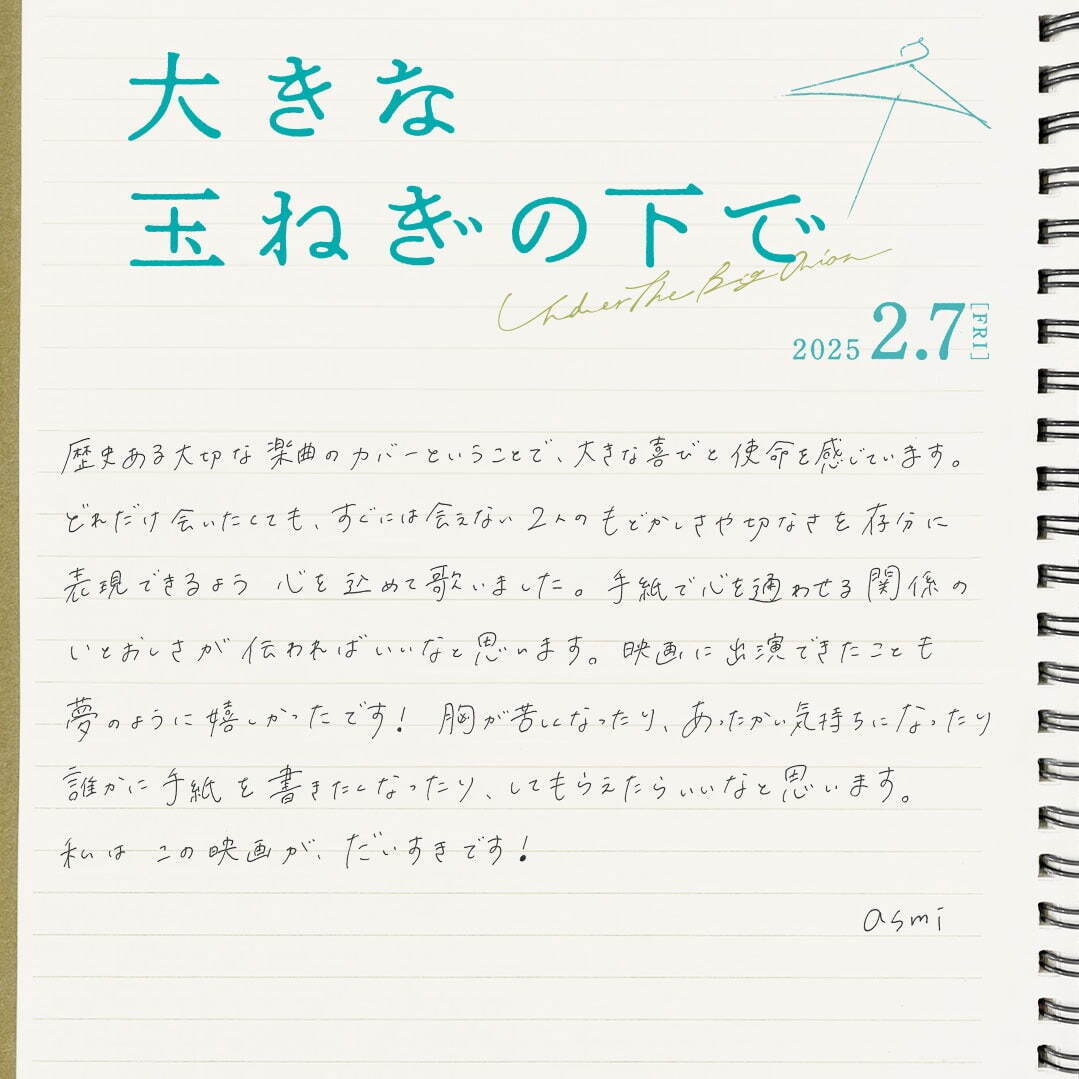 大きな
玉ねぎの下で
Under The Big Onion
2025 2.7 [FRI]
歴史ある大切な楽曲のカバーということで、大きな喜びと使命を感じています。
どれだけ会いたくても、すぐには会えない2人のもどかしさや切なさを存分に
表現できるよう 心を込めて歌いました。手紙で心を通わせる関係の
いとおしさが伝わればいいなと思います。映画に出演できたことも
夢のように嬉しかったです！ 胸が苦しくなったり、あったかい気持ちになったり
誰かに手紙を書きたくなったり、してもらえたらいいなと思います。
私は この映画が、だいすきです！
asmi